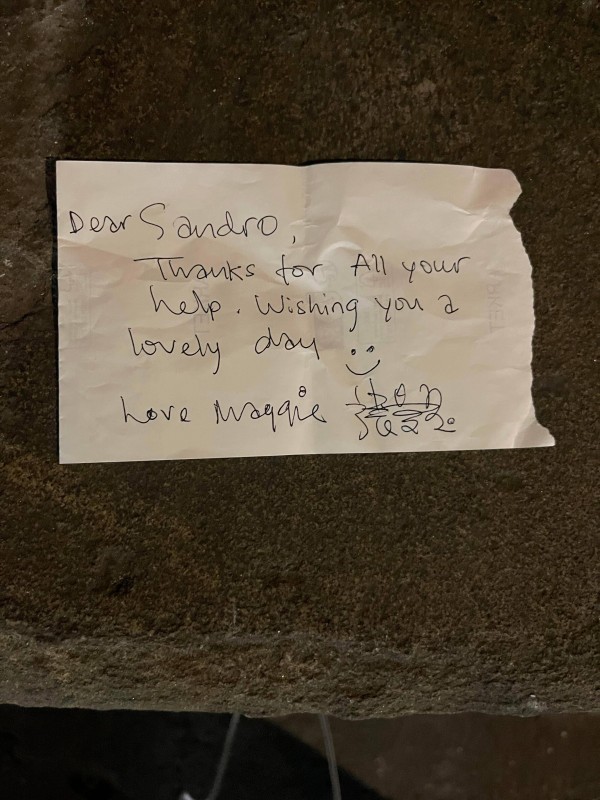 Dear Sandro,
Thanks for All your
help. Wishing you a
lovely day
Love Maggie